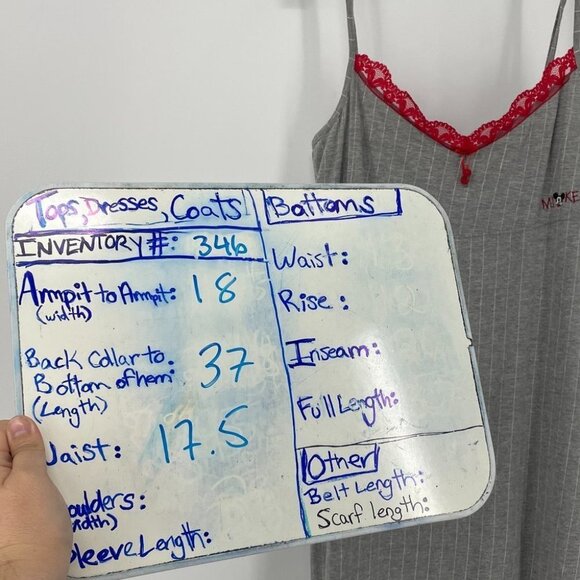 Tops, Dresses, Coats
INVENTORY #: 346
Armpit to Armpit: 18
(width)
Back Collar to
Bottom of hem: 37
(Length)
Waist: 17.5
oulders:
idth)
leeve Length:
Bottoms
Waist:
Rise:
Inseam:
Full Length:
Other
Belt Length:
Scarf length: